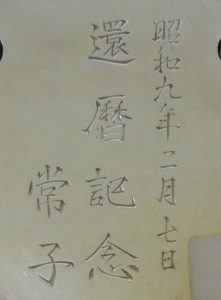 昭和九年二月七日
還暦記念
常子